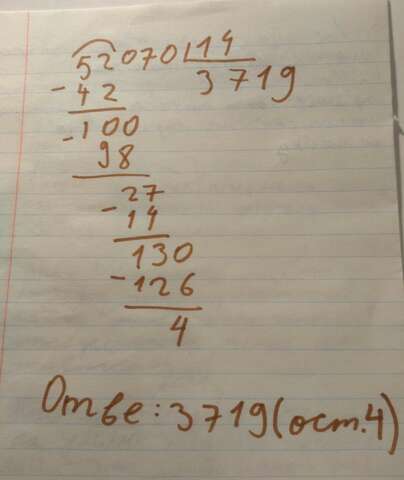 52070 14
- 42 3719
- 100
98
- 27
14
130
- 126
4
Ответ: 3719 (ост. 4)